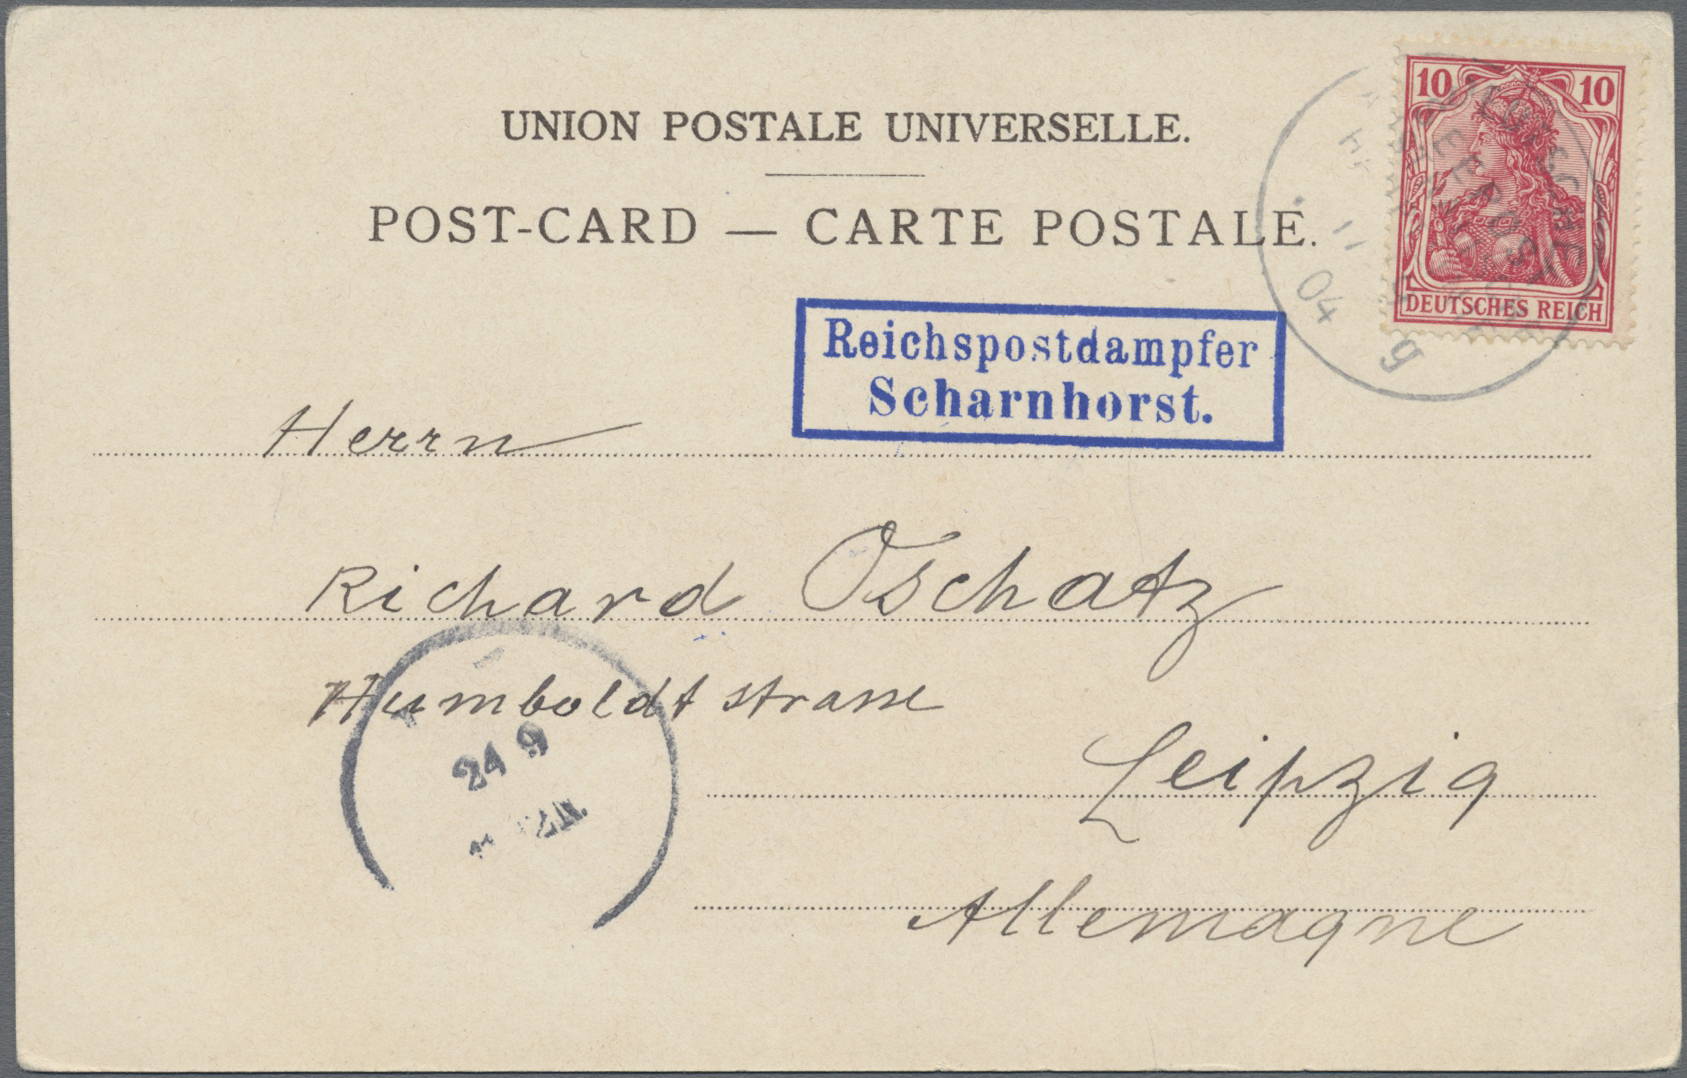 UNION POSTALE UNIVERSELLE.
POST-CARD — CARTE POSTALE.
10 10
DEUTSCHES REICH
DEUTSCHE
SEEPOST
11
04
g
Reichspostdampfer
Scharnhorst.
Herrn
Richard Oschatz
Humboldt strasse
Leipzig
Allemagne
24 9